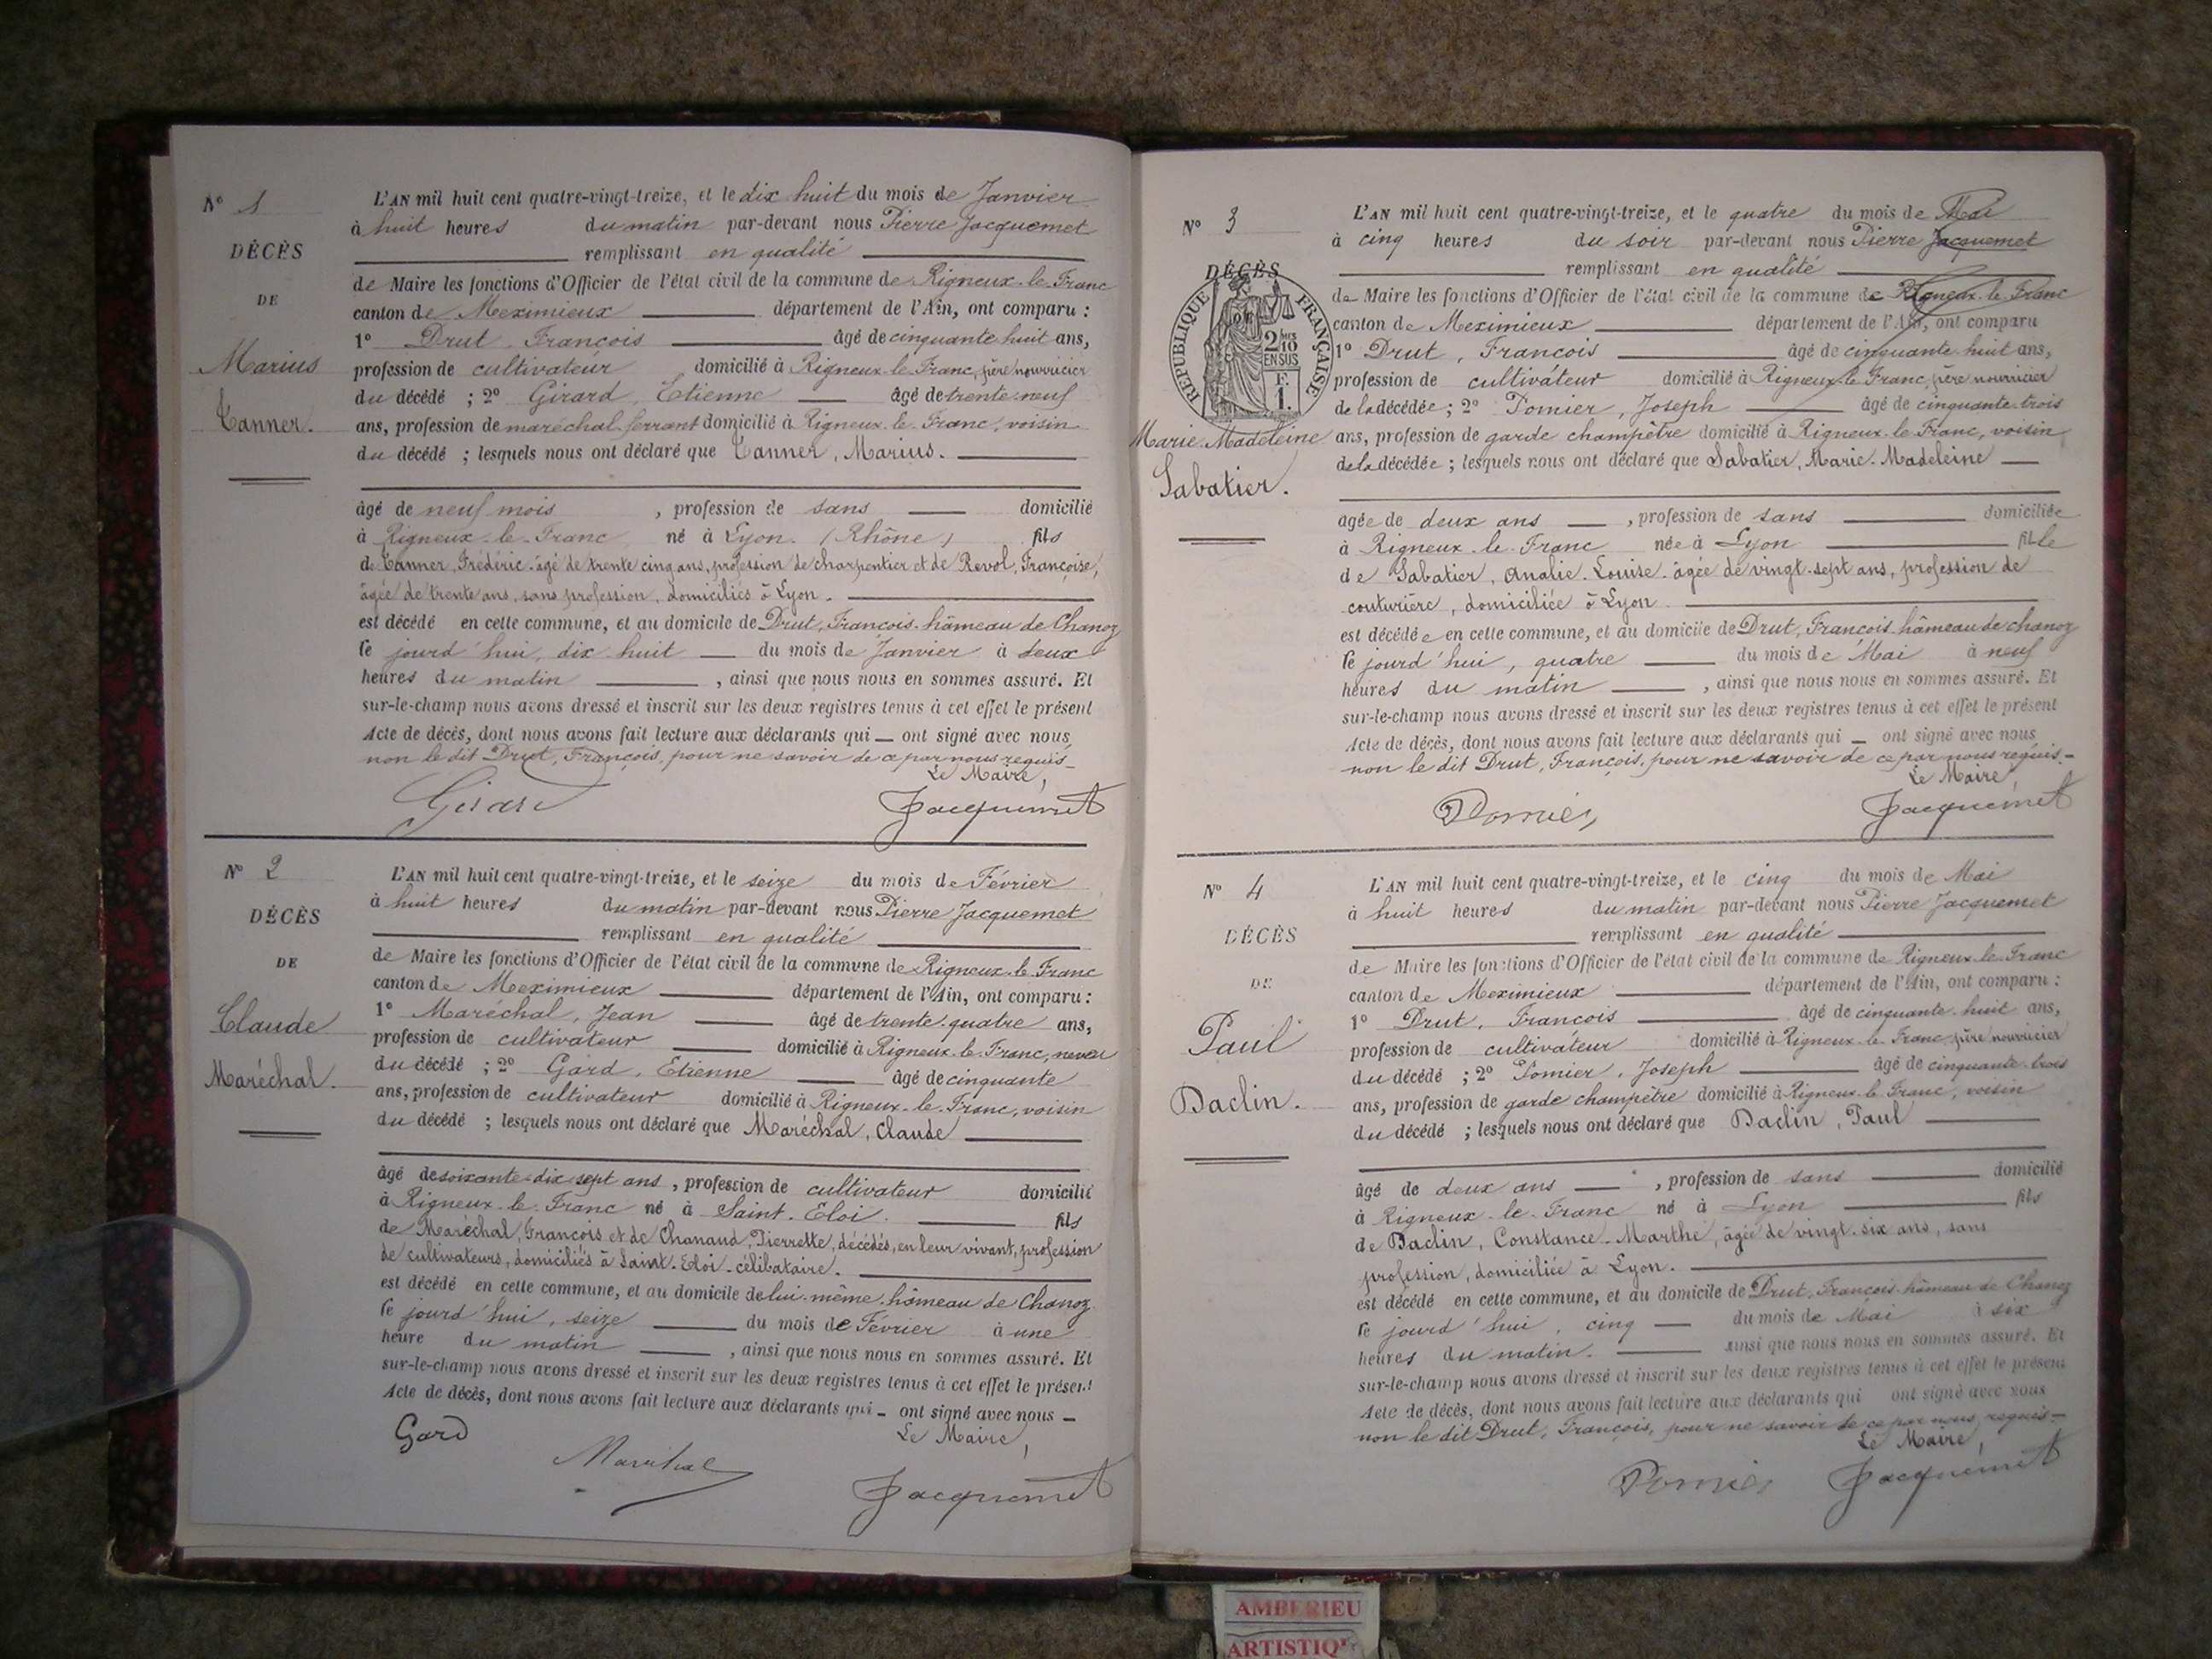 N° 1
DÉCÈS
DE
Marius
Tanner.
L'AN mil huit cent quatre-vingt-treize, et le dix huit du mois de Janvier
à huit heures du matin par-devant nous Pierre Jacquemet
remplissant en qualité
de Maire les fonctions d'Officier de l'état civil de la commune de Rigneux-le-Franc
canton de Meximieux département de l'Ain, ont comparu :
1° Drut, François âgé de cinquante huit ans,
profession de cultivateur domicilié à Rigneux-le-Franc, père nourricier
du décédé ; 2° Girard, Etienne âgé de trente-neuf
ans, profession de maréchal-ferrant domicilié à Rigneux-le-Franc, voisin
du décédé ; lesquels nous ont déclaré que Tanner, Marius.
âgé de neuf mois , profession de sans domicilié
à Rigneux-le-Franc né à Lyon. (Rhône) fils
de Tanner, Frédéric. âgé de trente cinq ans, profession de charpentier et de Revol, Françoise,
âgée de trente ans, sans profession, domiciliés à Lyon.
est décédé en cette commune, et au domicile de Drut, François. hâmeau de Chanoz
le jourd'hui, dix huit du mois de Janvier à deux
heures du matin , ainsi que nous nous en sommes assuré. Et
sur-le-champ nous avons dressé et inscrit sur les deux registres tenus à cet effet le présent
Acte de décès, dont nous avons fait lecture aux déclarants qui — ont signé avec nous,
non le dit Drut, François, pour ne savoir de ce par nous requis —
Le Maire,
Girard Jacquemet
N° 2
DÉCÈS
DE
Claude
Maréchal.
L'AN mil huit cent quatre-vingt-treize, et le seize du mois de Février
à huit heures du matin par-devant nous Pierre Jacquemet
remplissant en qualité
de Maire les fonctions d'Officier de l'état civil de la commune de Rigneux-le-Franc
canton de Meximieux département de l'Ain, ont comparu :
1° Maréchal, Jean âgé de trente-quatre ans,
profession de cultivateur domicilié à Rigneux-le-Franc, neveu
du décédé ; 2° Gard, Etienne âgé de cinquante
ans, profession de cultivateur domicilié à Rigneux-le-Franc, voisin
du décédé ; lesquels nous ont déclaré que Maréchal, Claude
âgé de soixante-dix sept ans , profession de cultivateur domicilié
à Rigneux-le-Franc né à Saint-Eloi. fils
de Maréchal, François et de Chanaud, Pierrette, décédés, en leur vivant, profession
de cultivateurs, domiciliés à Saint-Eloi - célibataire.
est décédé en cette commune, et au domicile de lui-même, hâmeau de Chanoz
le jourd'hui, seize du mois de Février à une
heure du matin , ainsi que nous nous en sommes assuré. Et
sur-le-champ nous avons dressé et inscrit sur les deux registres tenus à cet effet le présent
Acte de décès, dont nous avons fait lecture aux déclarants qui — ont signé avec nous —
Le Maire,
Gard
Maréchal
Jacquemet
N° 3
DÉCÈS
DE
RÉPUBLIQUE FRANÇAISE
2 MES 10 EN SUS
F. 1.
Marie-Madeleine
Sabatier.
L'AN mil huit cent quatre-vingt-treize, et le quatre du mois de Mai
à cinq heures du soir par-devant nous Pierre Jacquemet
remplissant en qualité
de Maire les fonctions d'Officier de l'état civil de la commune de Rigneux-le-Franc
canton de Meximieux département de l'Ain, ont comparu
1° Drut, François âgé de cinquante-huit ans,
profession de cultivateur domicilié à Rigneux-le-Franc, père nourricier
de la décédée ; 2° Pomier, Joseph âgé de cinquante-trois
ans, profession de garde champêtre domicilié à Rigneux-le-Franc, voisin
de la décédée ; lesquels nous ont déclaré que Sabatier, Marie-Madeleine
âgée de deux ans , profession de sans domiciliée
à Rigneux-le-Franc née à Lyon fille
de Sabatier, Analie-Louise. âgée de vingt-sept ans, profession de
couturière, domiciliée à Lyon
est décédée en cette commune, et au domicile de Drut, François. hâmeau de chanoz
le jourd'hui, quatre du mois de Mai à neuf
heures du matin , ainsi que nous nous en sommes assuré. Et
sur-le-champ nous avons dressé et inscrit sur les deux registres tenus à cet effet le présent
Acte de décès, dont nous avons fait lecture aux déclarants qui — ont signé avec nous
non le dit Drut, François, pour ne savoir de ce par nous requis. —
Le Maire,
Pomier Jacquemet
N° 4
DÉCÈS
DE
Paul
Daclin.
L'AN mil huit cent quatre-vingt-treize, et le cinq du mois de Mai
à huit heures du matin par-devant nous Pierre Jacquemet
remplissant en qualité
de Maire les fonctions d'Officier de l'état civil de la commune de Rigneux-le-Franc
canton de Meximieux département de l'Ain, ont comparu :
1° Drut, François âgé de cinquante-huit ans,
profession de cultivateur domicilié à Rigneux-le-Franc père nourricier
du décédé ; 2° Pomier, Joseph âgé de cinquante-trois
ans, profession de garde champêtre domicilié à Rigneux-le-Franc, voisin
du décédé ; lesquels nous ont déclaré que Daclin, Paul
âgé de deux ans , profession de sans domicilié
à Rigneux-le-Franc né à Lyon fils
de Daclin, Constance-Marthe, âgée de vingt-six ans, sans
profession, domiciliée à Lyon.
est décédé en cette commune, et au domicile de Drut, François. hâmeau de Chanoz
le jourd'hui, cinq du mois de Mai à six
heures du matin. ainsi que nous nous en sommes assuré. Et
sur-le-champ nous avons dressé et inscrit sur les deux registres tenus à cet effet le présent
Acte de décès, dont nous avons fait lecture aux déclarants qui ont signé avec nous
non le dit Drut, François, pour ne savoir de ce par nous requis —
Le Maire,
Pomier Jacquemet
AMBERIEU
ARTISTIQUE